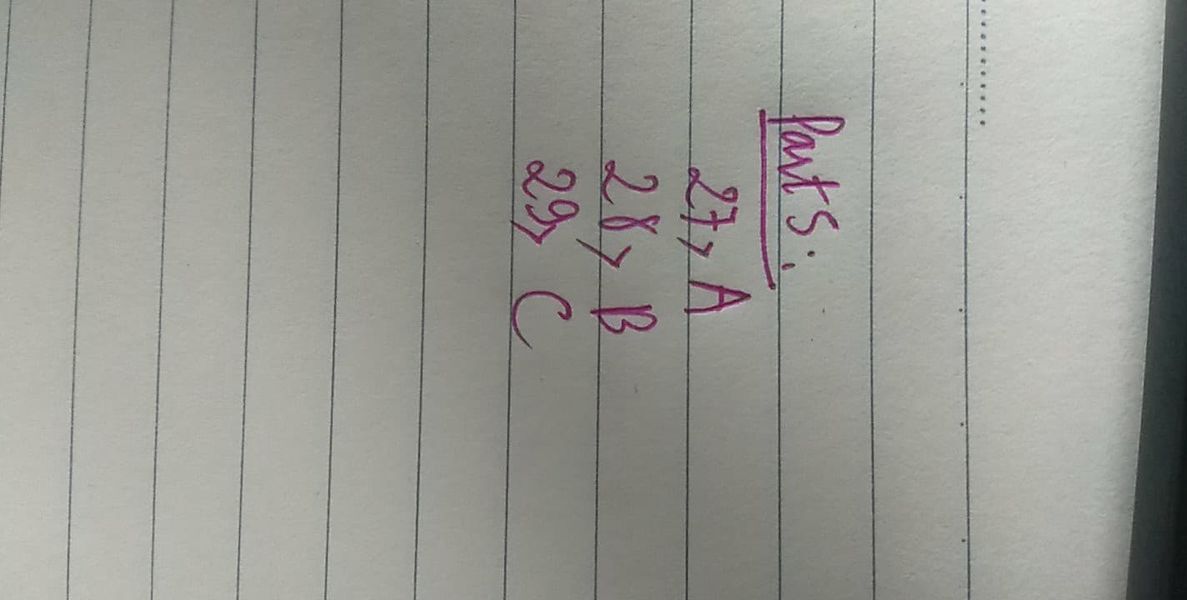 Part 5:
27> A
28> B
29> C